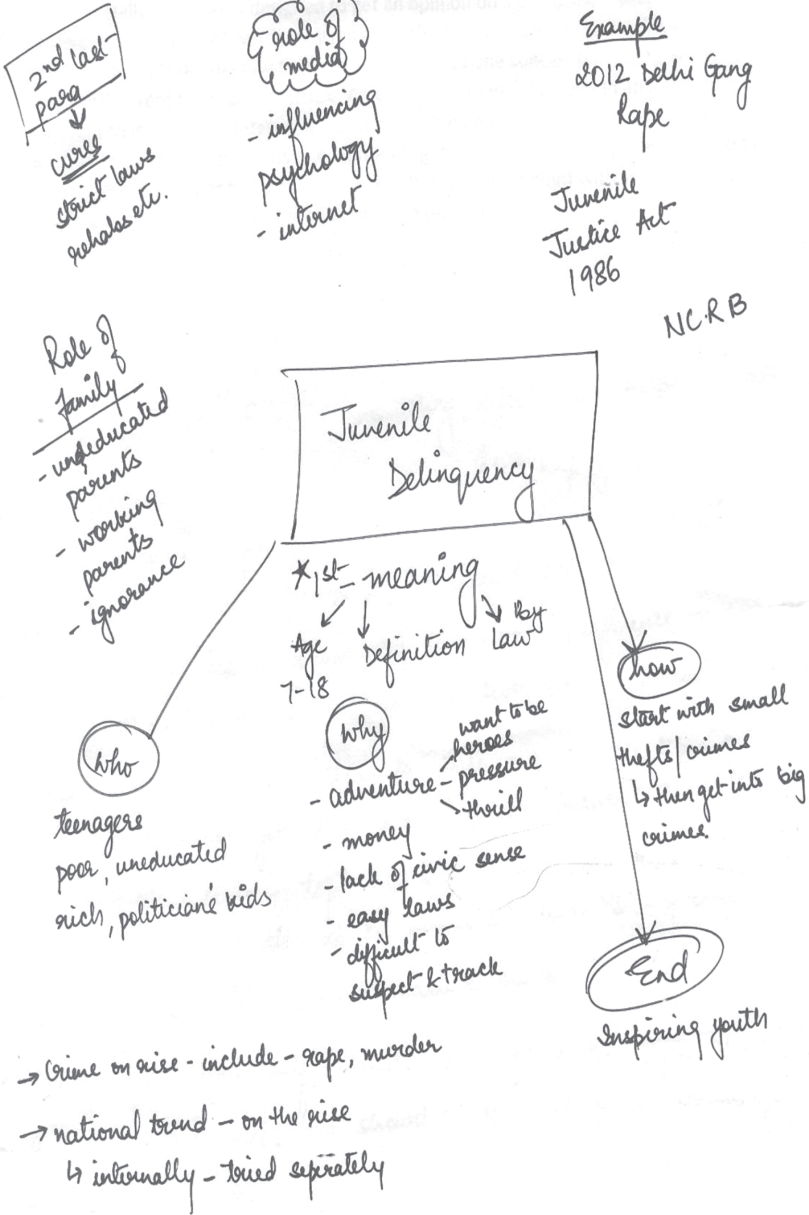 2nd last
para
cures
strict laws
rehabs etc.
role of
media
- influencing
psychology
- internet
Example
2012 Delhi Gang
Rape
Juvenile
Justice Act
1986
NCRB
Role of
family
- uneducated
parents
- working
parents
- ignorance
Juvenile
Delinquency
*1st - meaning
Age
7-18
Definition
Law by
who
teenagers
poor, uneducated
rich, politician's kids
why
- adventure - want to be
heroes
pressure
thrill
- money
- lack of civic sense
- easy laws
- difficult to
suspect & track
how
start with small
thefts/crimes
↳ then get into big
crimes.
End
Inspiring youth
→ Crime on rise - include - rape, murder
→ national trend - on the rise
↳ internally - tried seperately